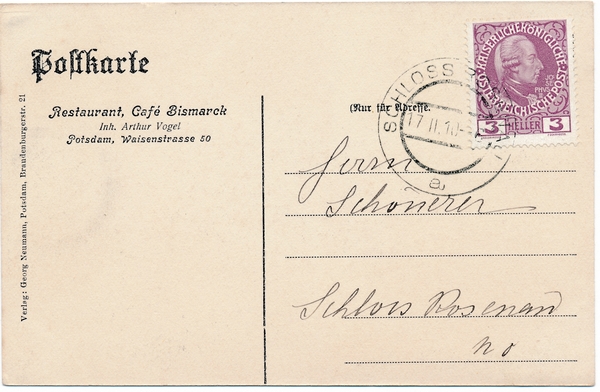 Postkarte
Restaurant, Café Bismarck
Inh. Arthur Vogel
Potsdam, Waisenstrasse 50
Verlag: Georg Neumann, Potsdam, Brandenburgerstr. 21
(Nur für Adresse.
KAISERLICHE KÖNIGLICHE
ÖSTERREICHISCHE POST
3 HELLER 3
SCHLOSS ROS
17 II 10
a
Herrn
Schönerer
Schloss Rosenau
No